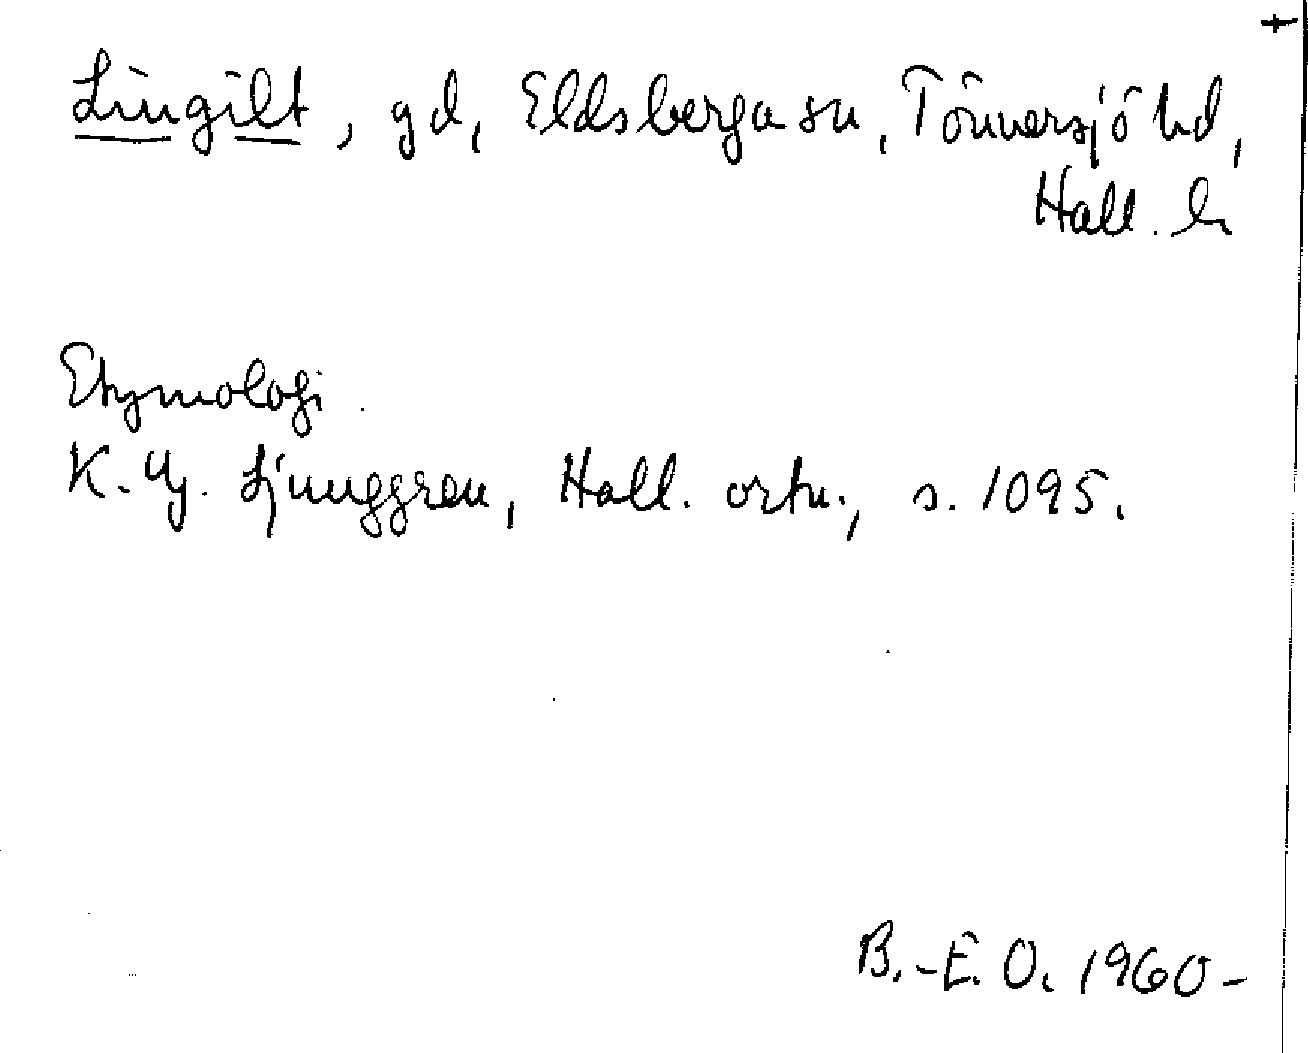 +
Lingilt, gd, Eldsberga sn, Tönnersjö hd,
Hall. l.
Etymologi.
K. G. Ljunggren, Hall. ortn., s. 1095.
B.-E. O. 1960-